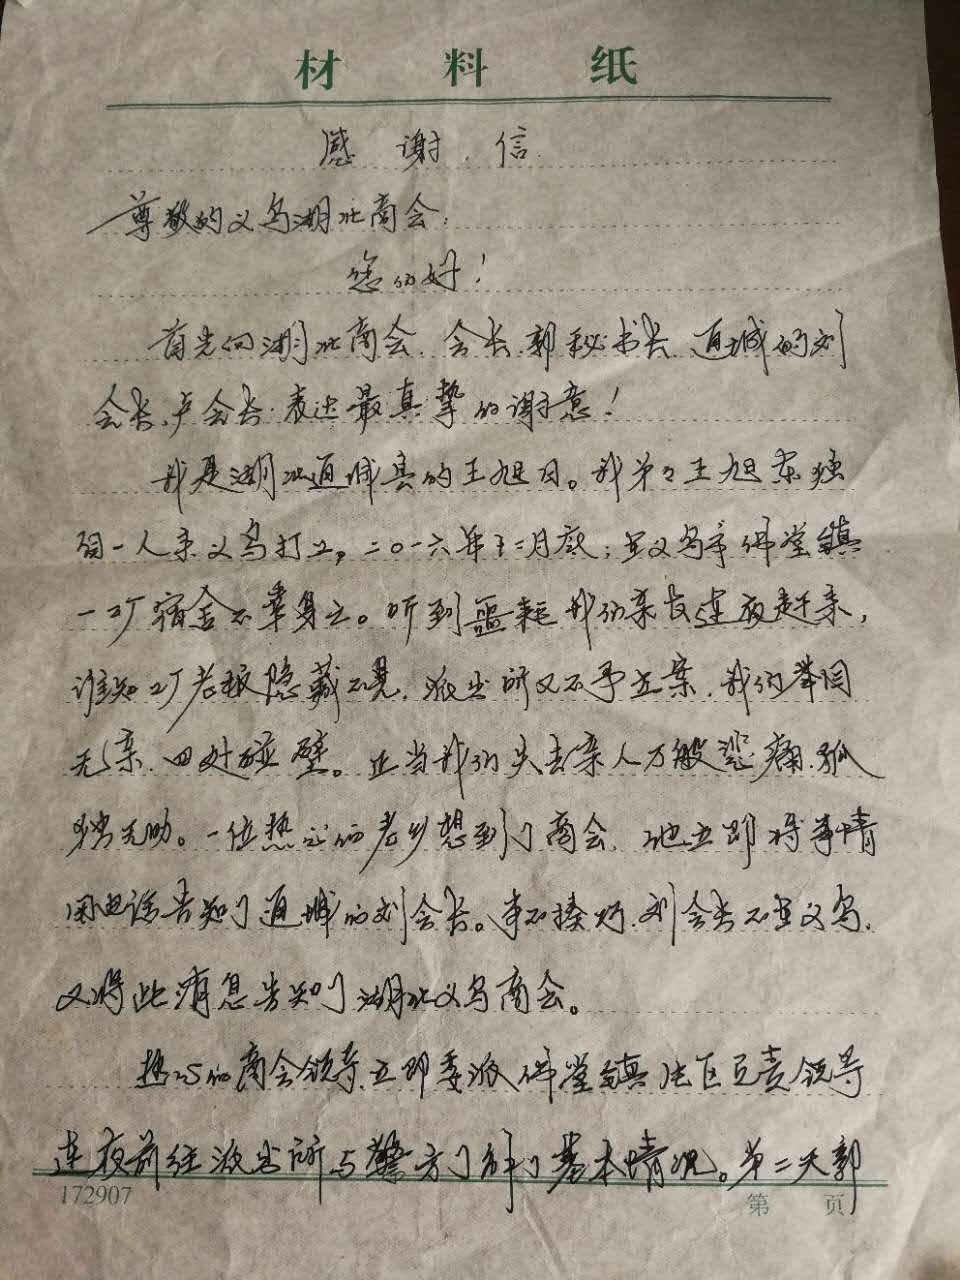 材 料 纸
感 谢 信
尊敬的义乌湖北商会:
您们好!
首先向湖北商会、会长、郭秘书长、通城的刘
会长、卢会长、表达最真挚的谢意!
我是湖北通城县的王旭日。我弟弟王旭东独
自一人来义乌打工,二〇一六年十二月底;在义乌市佛堂镇
一工厂宿舍不幸身亡。听到噩耗我们亲友连夜赶来,
谁知工厂老板隐藏不见,派出所又不予立案,我们举目
无亲、四处碰壁。正当我们失去亲人万般悲痛、孤
独无助。一位热心的老乡想到了商会,他立即将事情
用电话告知了通城的刘会长。幸不凑巧,刘会长不在义乌,
又将此消息告知了湖北义乌商会。
热心的商会领导立即委派佛堂镇片区负责领导
连夜前往派出所与警方了解了基本情况。第二天郭
172907
第 页